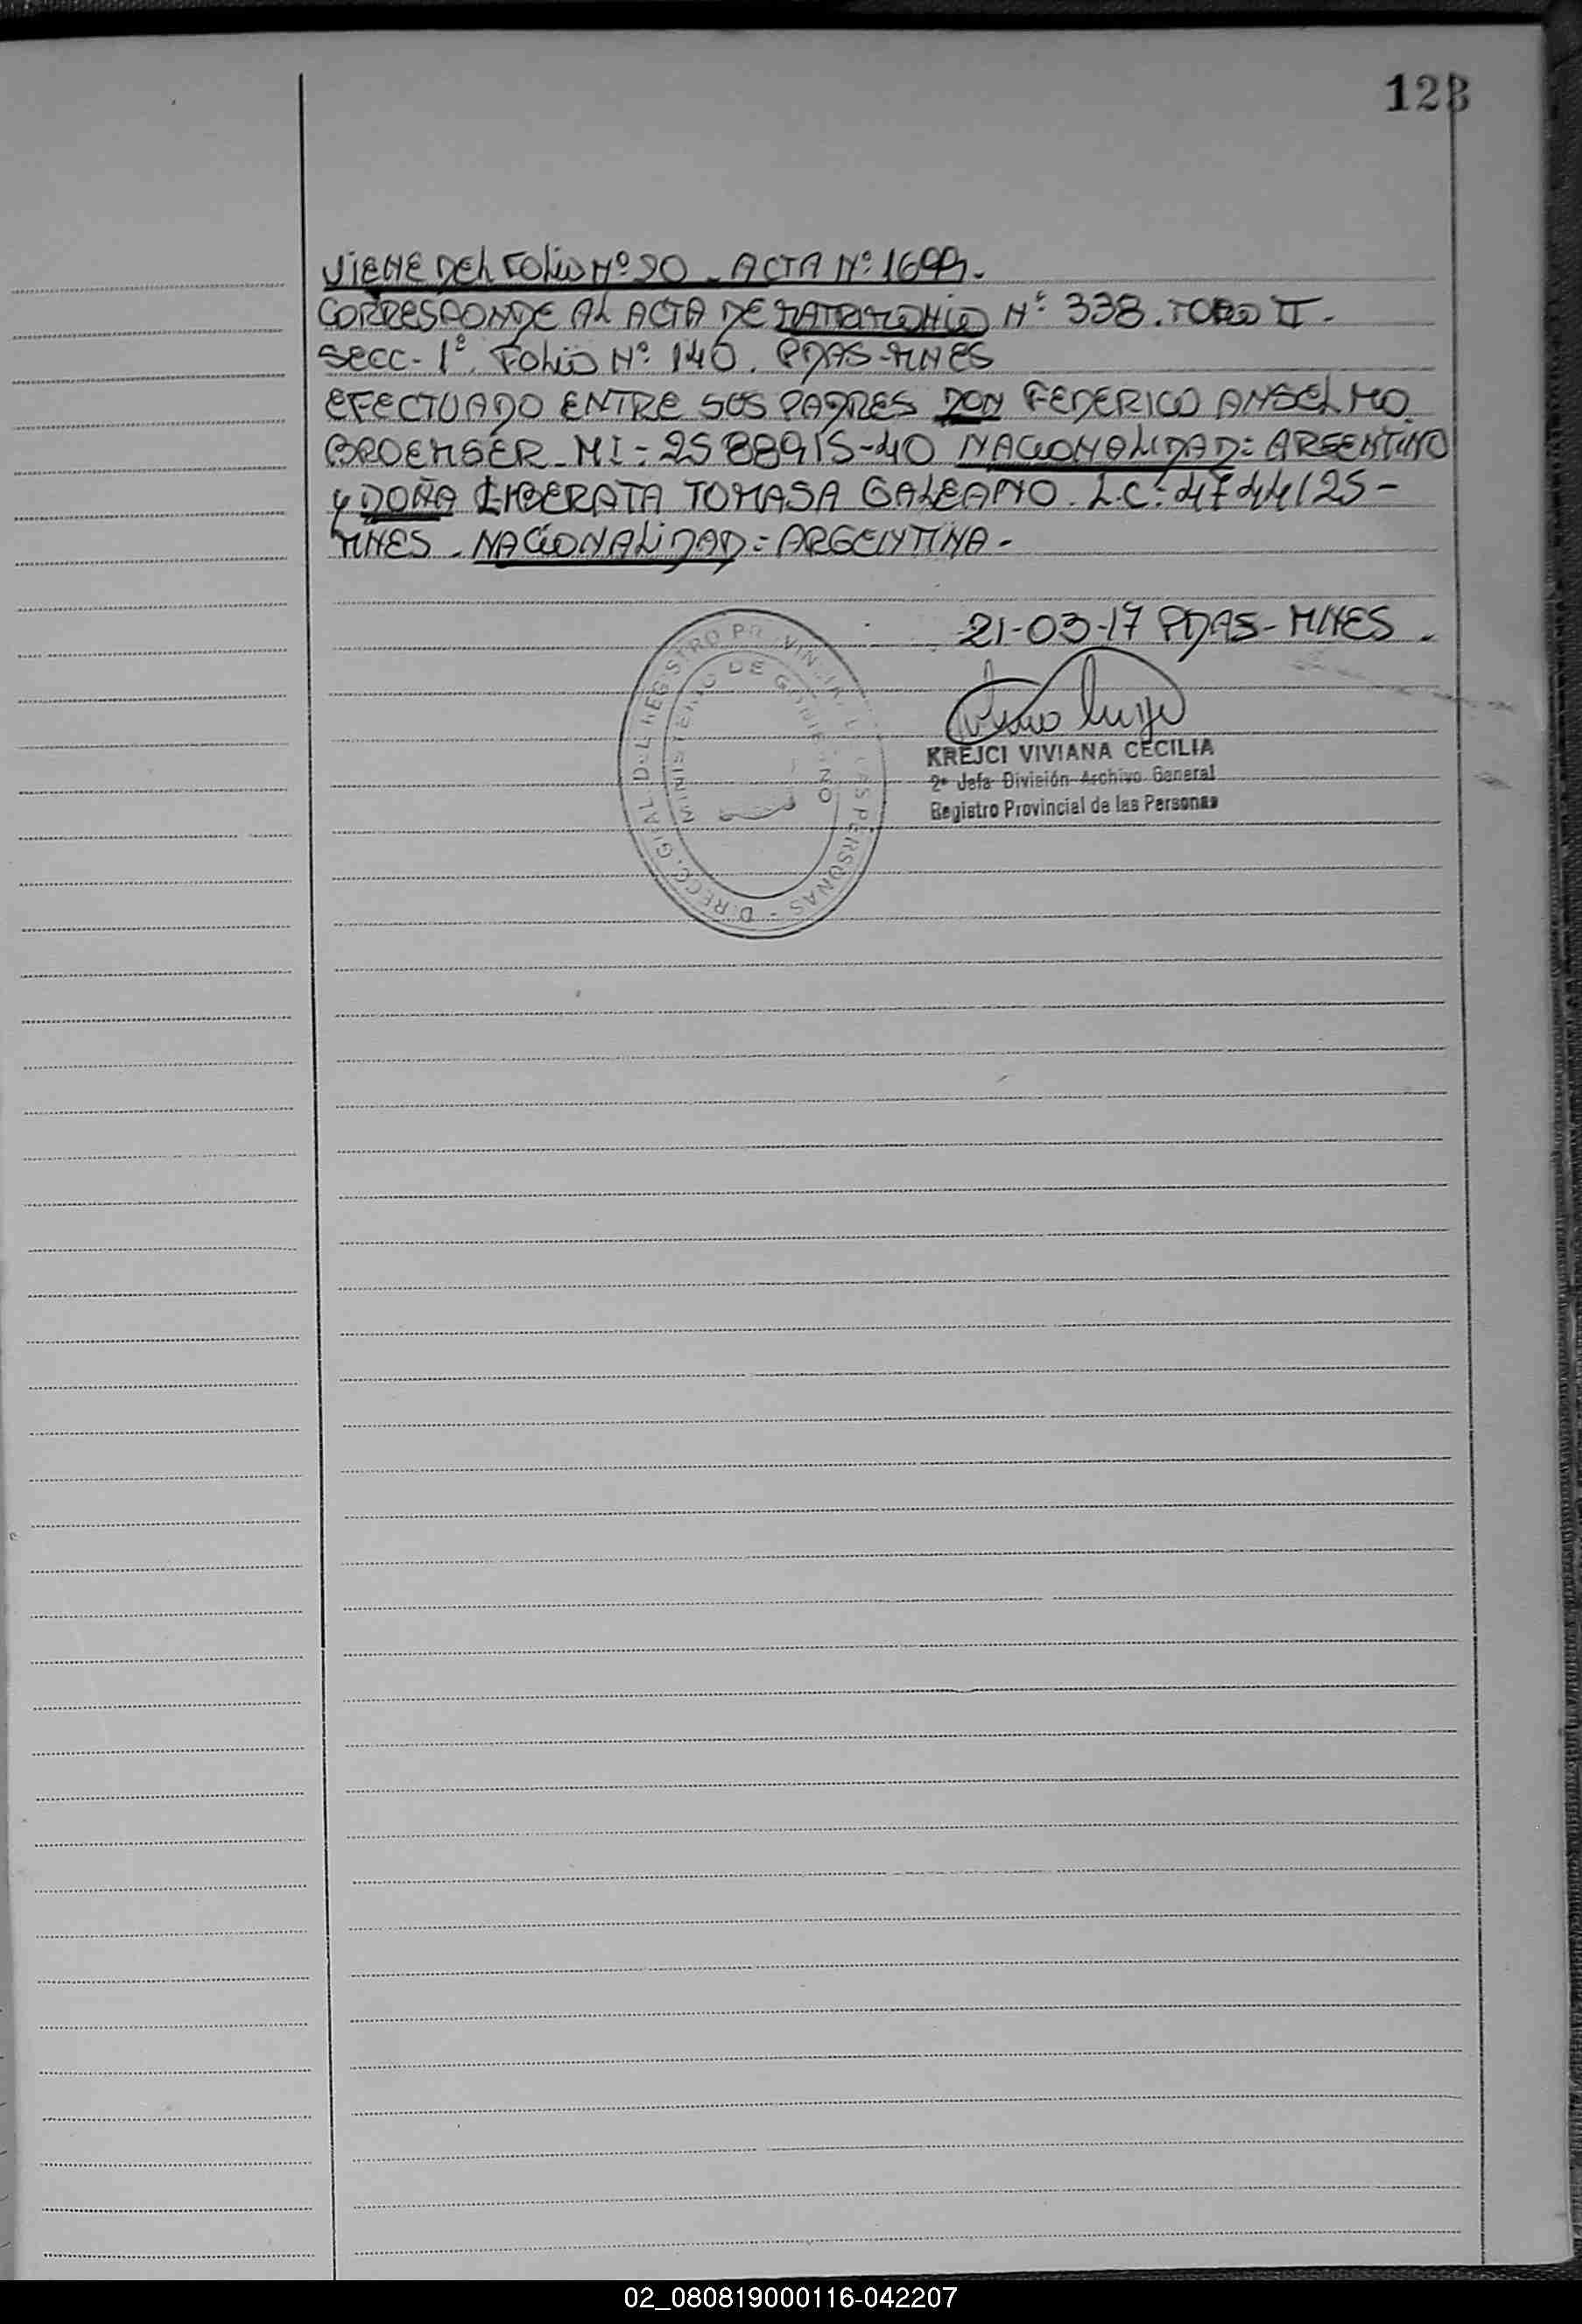 123
VIENE DEL FOLIO Nº 90 - ACTA Nº 1699.
CORRESPONDE AL ACTA DE MATRIMONIO Nº 338. TOMO II -
SECC - 1º. FOLIO Nº 140. PDAS-MNES
EFECTUADO ENTRE SUS PADRES DON FEDERICO ANSELMO
BROEMSER - MI: 2588915-40 NACIONALIDAD: ARGENTINO
y DOÑA LIBERATA TOMASA GALEANO. L.C: 4744125-
MNES - NACIONALIDAD: ARGENTINA -
21-03-17 PDAS-MNES.
DIRECC. GRAL. DEL REGISTRO PROVINCIAL DE LAS PERSONAS -
MINISTERIO DE GOBIERNO
KREJCI VIVIANA CECILIA
2º Jefa División Archivo General
Registro Provincial de las Personas
02_080819000116-042207